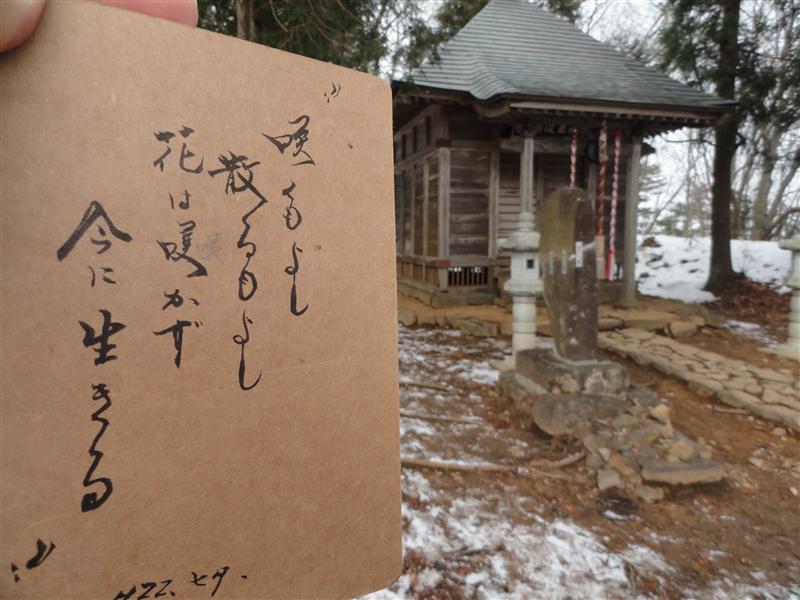 咲くもよし
散るもよし
花は咲かず
今に生きる
H22.七夕.